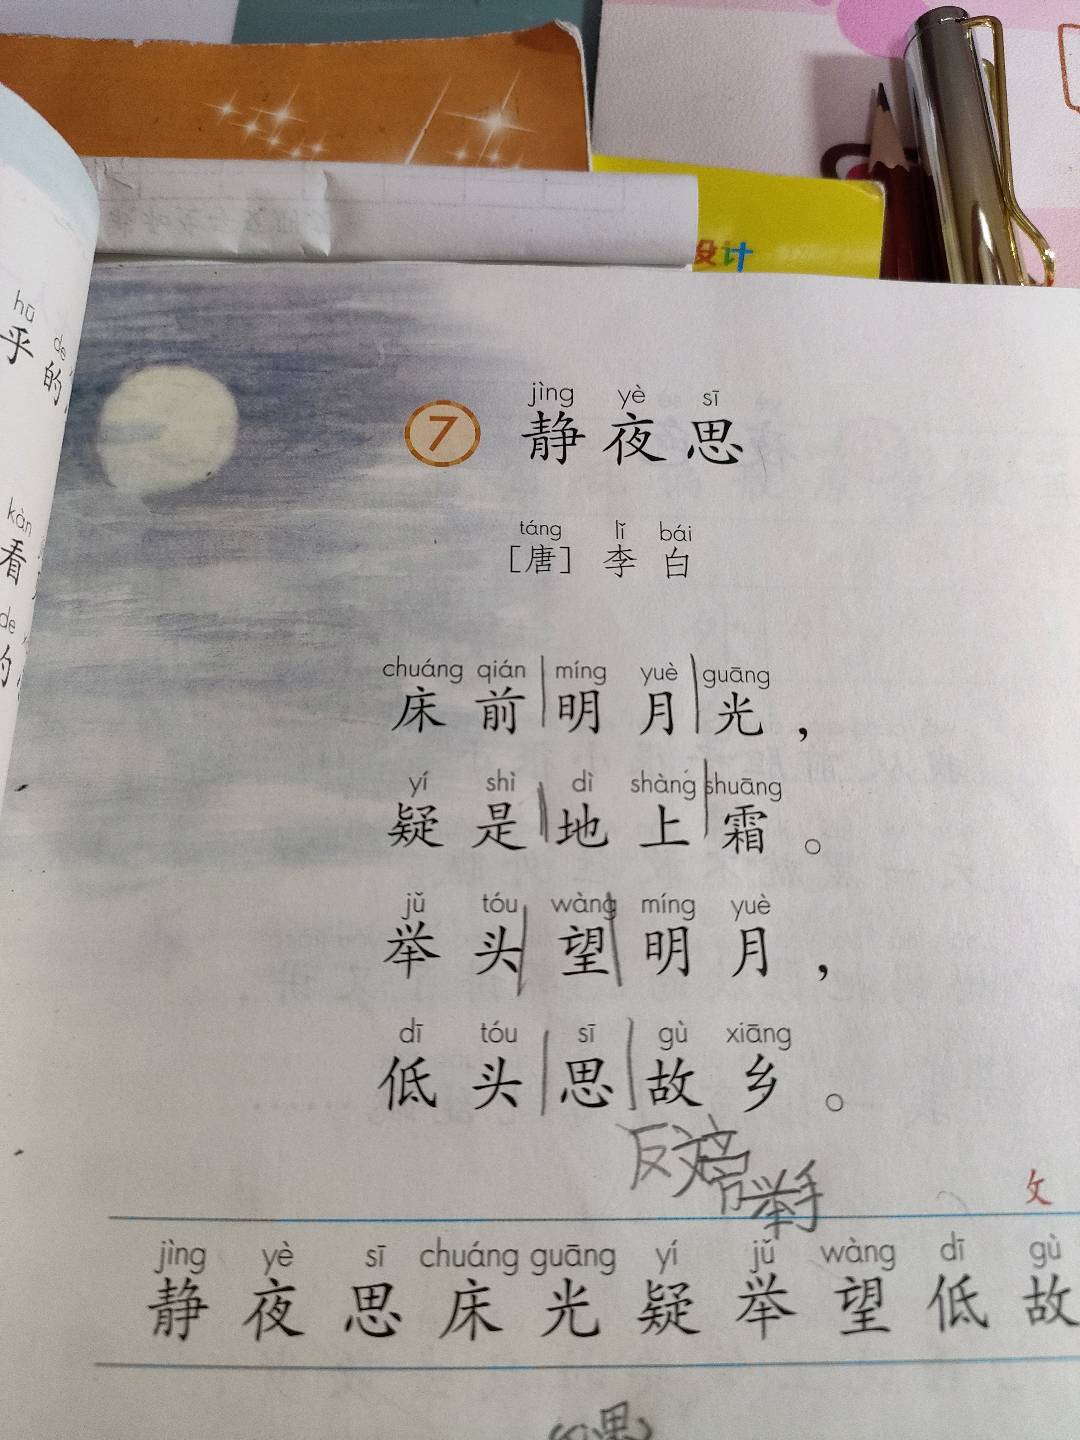 设计
hū
乎
de
的
kàn
看
de
的
jìng yè sī
7 静夜思
táng lǐ bái
[唐] 李白
chuáng qián míng yuè guāng
床前明月光，
yí shì dì shàng shuāng
疑是地上霜。
jǔ tóu wàng míng yuè
举头望明月，
dī tóu sī gù xiāng
低头思故乡。
反文旁举手
攵
jìng yè sī chuáng guāng yí jǔ wàng dī gù
静夜思床光疑举望低故
思